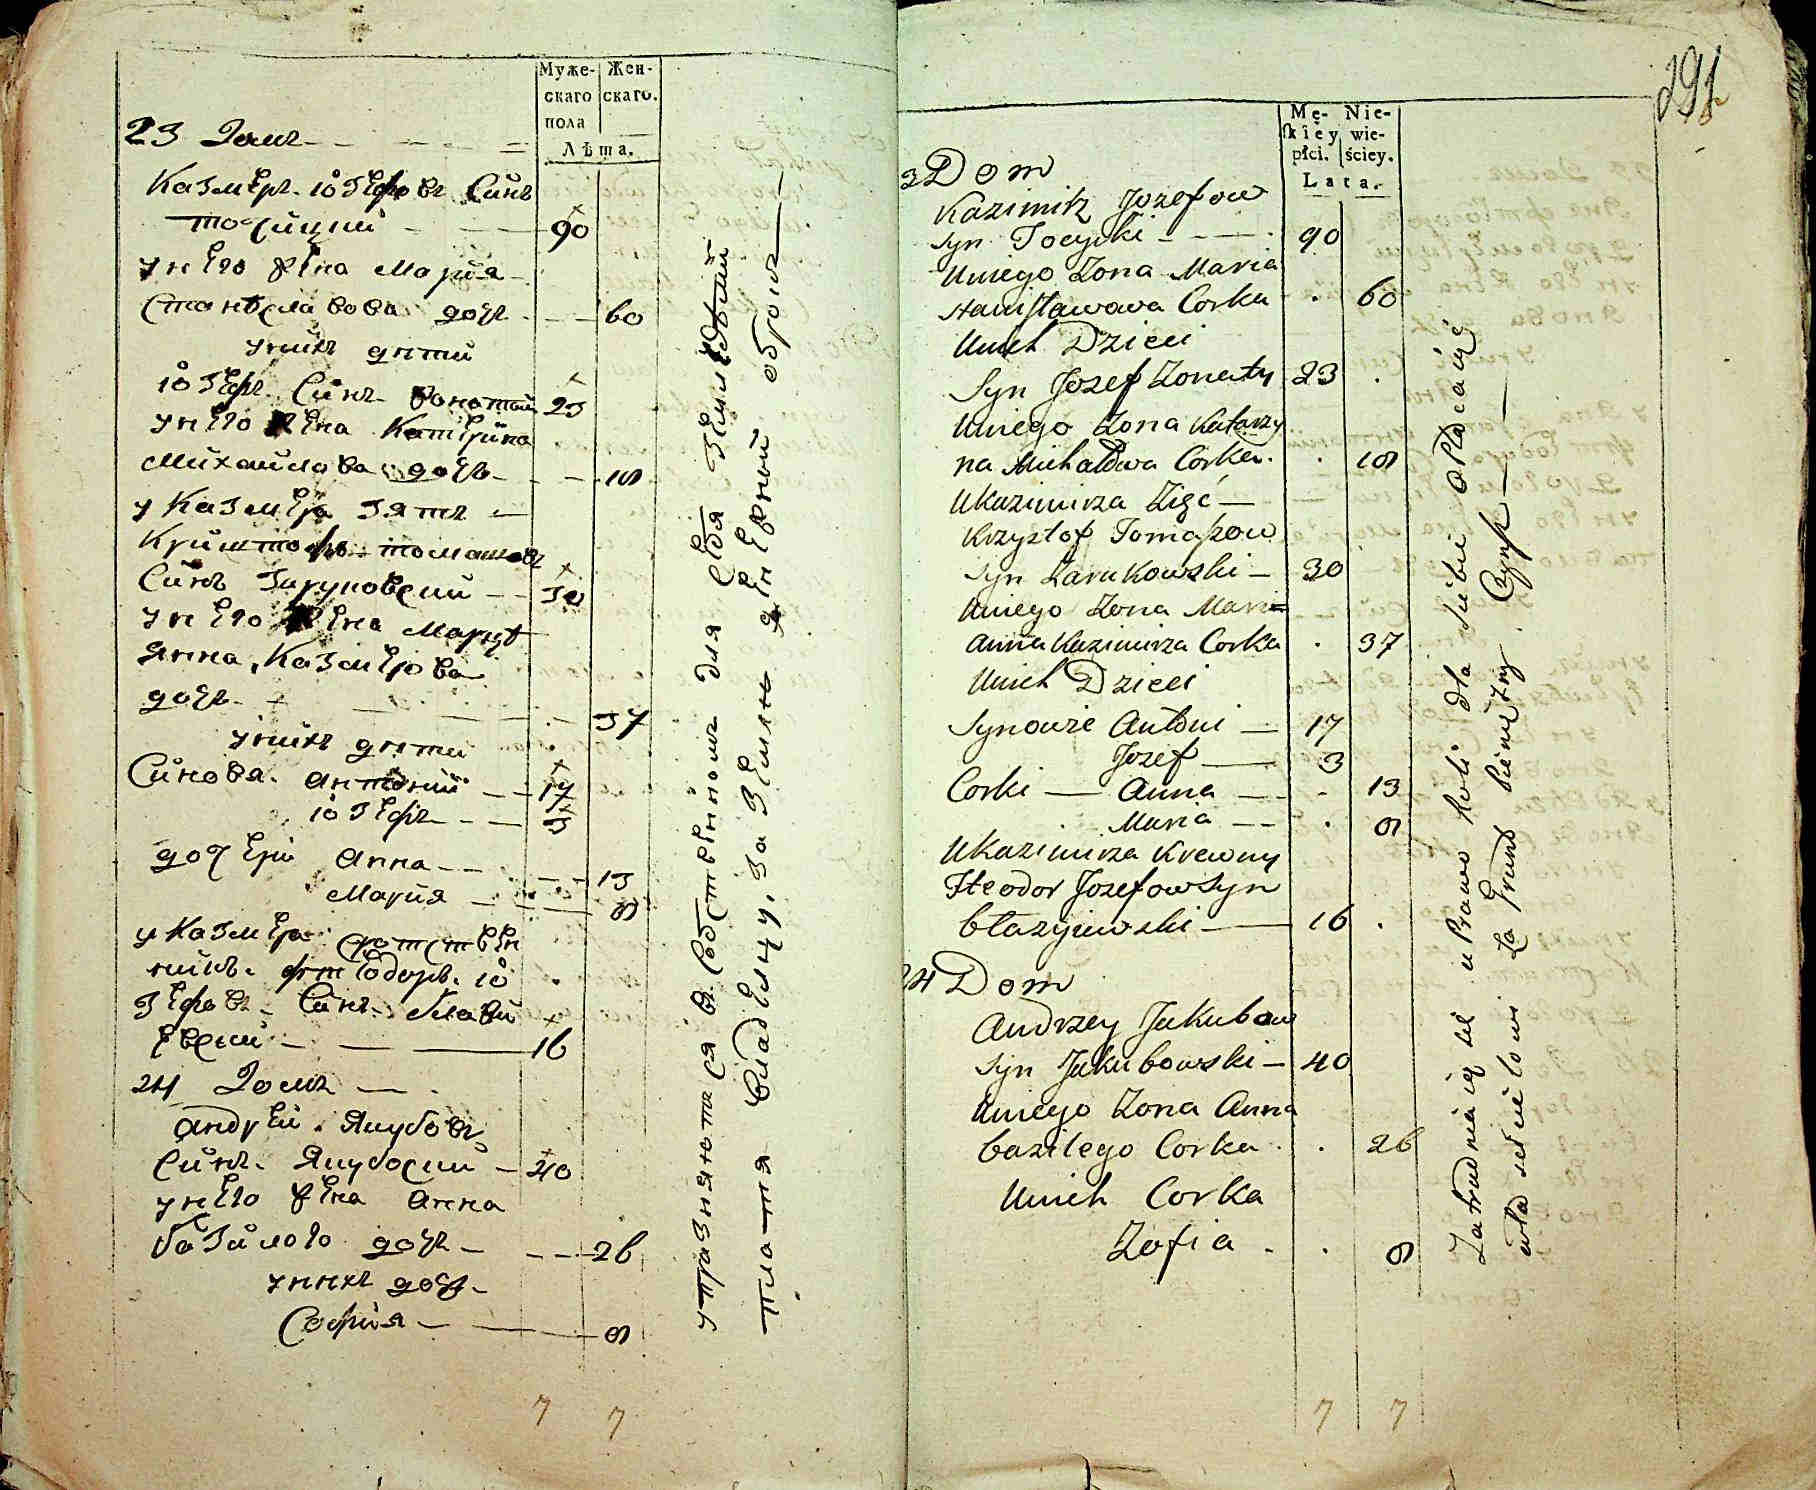 Муже- Жен-
скаго скаго.
пола
Лѣта.
23 Домъ
Казмеръ іозефовъ Синъ
точицкий 90
у него жена Мария
Станѣславова дочь 60
у нихъ дѣти
іозефъ Синъ жонатый 23
у него жена Катерина
Михайлова дочь 18
у Казмера зять
Криштофъ томашовъ
Синъ Заруковский 30
у него жена Марця
Анна, Казмерова
дочь 37
у нихъ дѣти
Синовя антоний 17
іозефъ 3
дочери Анна 13
Мария 8
у Казмера сротствен
никъ фтеодоръ іо
зефовъ Синъ блажи
евский 16
24 Домъ
андрей Якубовъ
Синъ Якубоский 40
у него жена Анна
базилого дочь 26
у нихъ дочь
София 8
7 7
упражняются въ собственномъ для себя земледѣлии
платя владельцу, за землю денежный оброкъ
291
Mę- Nie-
ſkiéy wie-
płci. ściey.
Lata.
3 Dom
Kazimirz Jozefow
Syn Tocycki 90
Uniego Zona Maria
Stanisławowa Corka 60
Unich Dzieci
Syn Jozef Zonaty 23
Uniego Zona Katarzy
na Michałowa Corka 18
UKazimirza Zięć
Krzysztof Tomaszow
Syn Zarukowski 30
Uniego Zona Maria
Anna Kazimirza Corka 37
Unich Dzieci
Synowie Antoni 17
Jozef 3
Corki Anna 13
Maria 8
UKazimirza Krewny
Fteodor Jozefow Syn
błażyiewski 16
24 Dom
Andrzey Jakubow
Syn Jakubowski 40
Uniego Zona Anna
bazilego Corka 26
Unich Corka
Zofia 8
7 7
Zatrudniaią się uPrawą Roli dla siebie opłacaiąc
właścicielowi Za Grunt pieniężny Czynsz